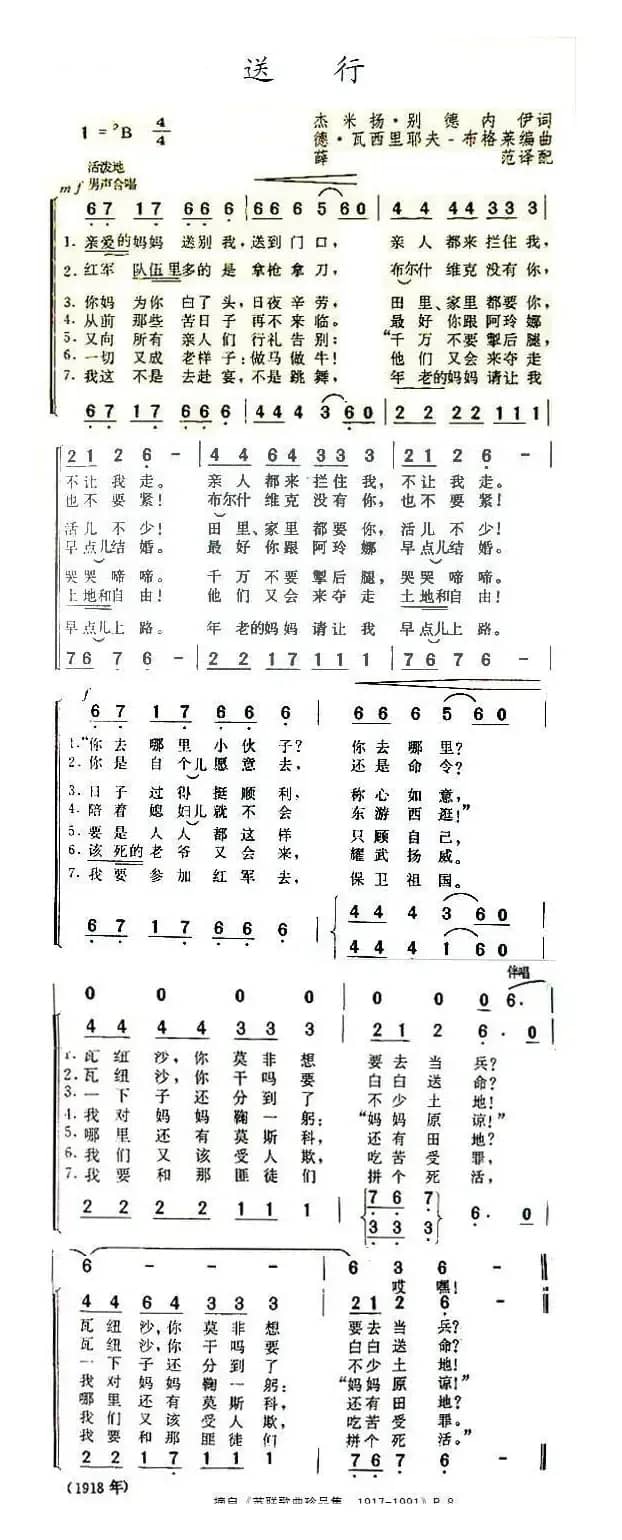 送 行
1=♭B 4/4
杰米扬·别德内伊词
德·瓦西里耶夫-布格莱编曲
薛 范译配
活泼地
mf 男声合唱
6 7 1 7 6 6 6 | 6 6 6 5 6 0 | 4 4 4 4 3 3 3
1. 亲爱的妈妈 送别我，送到门口， 亲人都来拦住我，
2. 红军 队伍里多的是 拿枪拿刀， 布尔什维克没有你，
3. 你妈为你 白了头，日夜辛劳， 田里、家里都要你，
4. 从前那些 苦日子再不来临。 最好你跟阿玲娜
5. 又向所有亲人们行礼告别： “千万不要掣后腿，
6. 一切又成 老样子：做马做牛！ 他们又会来夺走
7. 我这不是去赴宴，不是跳舞， 年老的妈妈请让我
6 7 1 7 6 6 6 | 4 4 4 3 6 0 | 2 2 2 2 1 1 1
2 1 2 6 - | 4 4 6 4 3 3 3 | 2 1 2 6 -
不让我走。 亲人都来拦住我，不让我走。
也不要紧！ 布尔什维克没有你，也不要紧！
活儿不少！ 田里、家里都要你，活儿不少！
早点儿结婚。 最好你跟阿玲娜 早点儿结婚。
哭哭啼啼。 千万不要掣后腿，哭哭啼啼。
土地和自由！ 他们又会来夺走 土地和自由！
早点儿上路。 年老的妈妈请让我 早点儿上路。
7 6 7 6 - | 2 2 1 7 1 1 1 | 7 6 7 6 -
f
6 7 1 7 6 6 6 | 6 6 6 5 6 0
1.“你去哪里小伙子？ 你去哪里？
2. 你是自个儿愿意去， 还是命令？
3. 日子过得挺顺利， 称心如意，
4. 陪着媳妇儿就不会 东游西逛！”
5. 要是人人都这样 只顾自己，
6. 该死的老爷又会来， 耀武扬威。
7. 我要参加红军去， 保卫祖国。
6 7 1 7 6 6 6 | 4 4 4 3 6 0
4 4 4 1 6 0
伴唱
0 0 0 0 | 0 0 0 6·
4 4 4 4 3 3 3 | 2 1 2 6· 0
1. 瓦纽沙，你莫非想 要去当兵？
2. 瓦纽沙，你干吗要 白白送命？
3. 一下子还分到了 不少土地！
4. 我对妈妈鞠一躬： “妈妈原谅！”
5. 哪里还有莫斯科， 还有田地？
6. 我们又该受人欺， 吃苦受罪，
7. 我要和那匪徒们 拼个死活，
2 2 2 2 1 1 1 | 7 6 7 6· 0
3 3 3
6 - - - | 6 3 6 -
哎嘿！
4 4 6 4 3 3 3 | 2 1 2 6 -
瓦纽沙，你莫非想 要去当兵？
瓦纽沙，你干吗要 白白送命？
一下子还分到了 不少土地！
我对妈妈鞠一躬： “妈妈原谅！”
哪里还有莫斯科， 还有田地？
我们又该受人欺， 吃苦受罪。
我要和那匪徒们 拼个死活。”
2 2 1 7 1 1 1 | 7 6 7 6 -
(1918年)
摘自《苏联歌曲珍品集 1917-1991》P.8